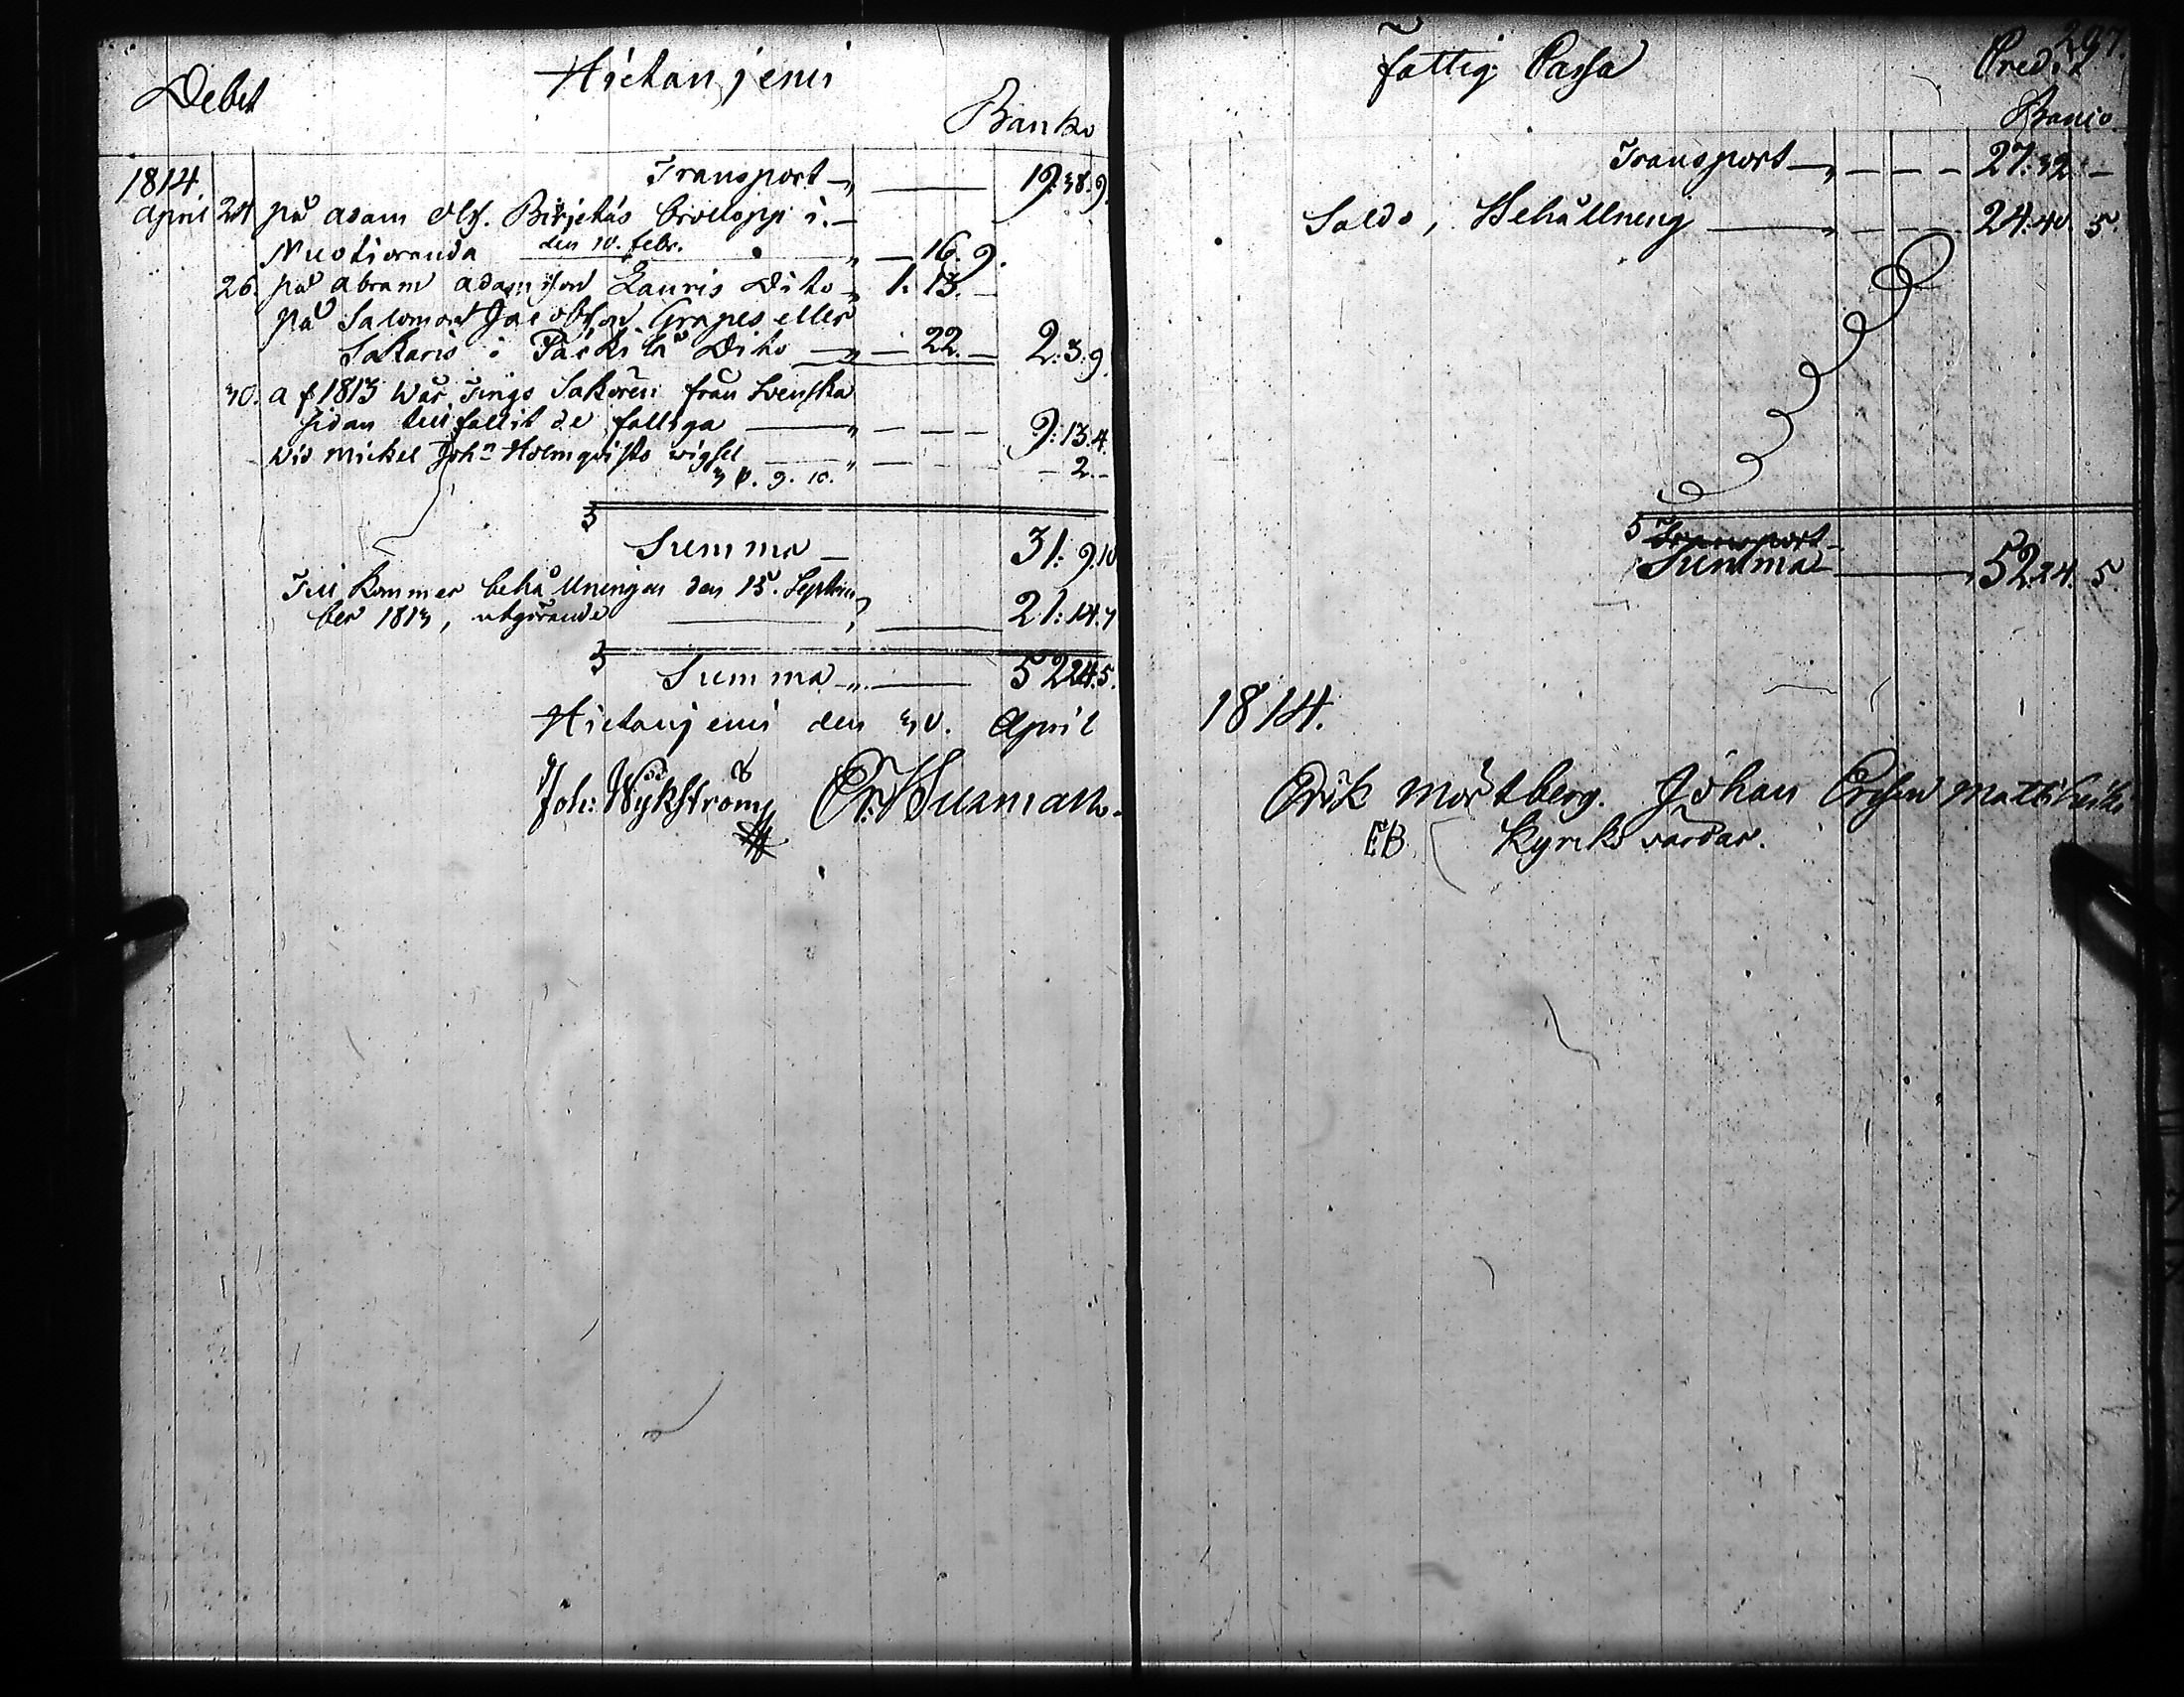 Debet Hietaniemi
Banko
1814 Transport 19:38.9.
April 24 på Adam Olofs. Birjetäs brölloppi i
Nuotioranda den 10. febr. — 16. 9.
26. på Abram Adamsson Lauris Dito 1: 13. —
på Salomon Jacobson Grapes eller
Sakaris i Päckilä Dito — 22. — 2:3.9.
30. af 1813 Wår Tings Sakören från Svenska
sidan tillfallit de fattiga 9:13.4.
wid Mickel John Holmqvists wigsel — 2. —
3 9. 10.
Summa — 31: 9.10
Till kommer behållningen den 15. Septem
ber 1813, utgörande 21:14.7
Summa 52 24.5.
Hietaniemi den 30. April
Joh: Wykström
Fattig Cassa Credit 297.
Banco
Transport 27:32 —
Saldo, Behållning 24:40. 5.
Transport
Summa 52.24. 5.
1814.
Erik Mörtberg. Johan Ersson Matts
EB Kyrckovärdar.